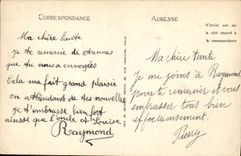 CORRESPONDANCE
Ma chère tante
je te remercie de
que tu nous a envoyés
Cela me fait grand plaisir
en attendant de tes nouvelles
je t'embrasse bien fort
ainsi que l'oncle et Louise
Raymond
ADRESSE
N'écrire que sur
le côté réservé à
la correspondance
Ma chère tante
Je me joins à Raymond
pour te remercier et vous
embrasser tous bien
affectueusement.